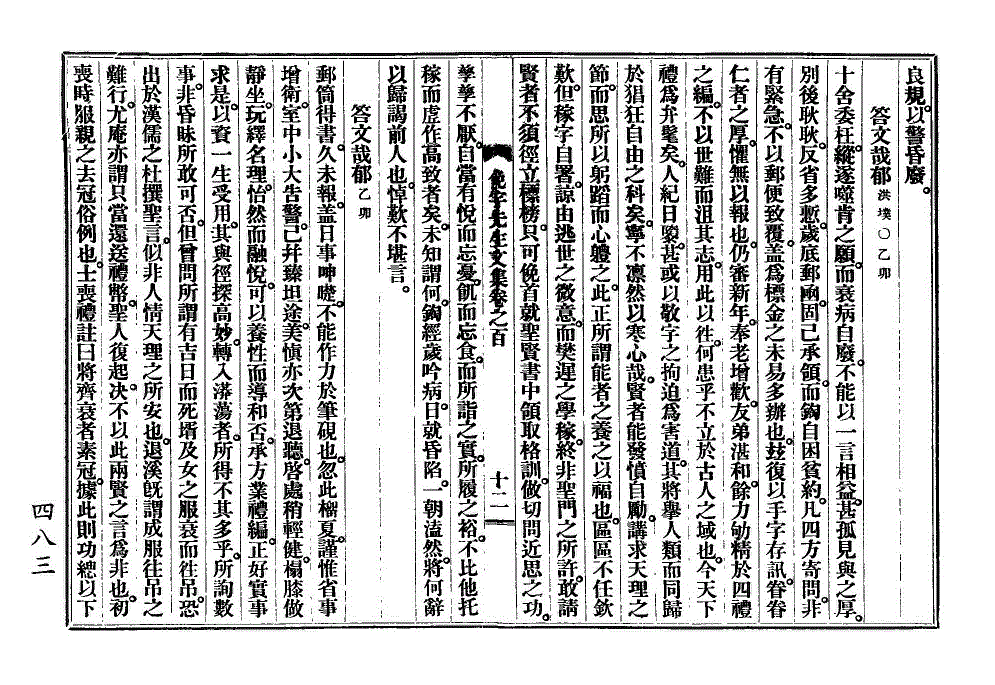 良規。以警昏廢。
答文哉郁 洪墣○乙卯
十舍委枉。縱遂噬肯之願。而衰病自廢。不能以一言相益。甚孤見與之厚。
別後耿耿。反省多慙。歲底郵凾。固已承領。而鋾自困貧約。凡四方寄問。非
有緊急。不以郵便致覆。盖爲標金之未易多辦也。玆復以手字存訊。眷眷
仁者之厚。懼無以報也。仍審新年。奉老增歡。友弟湛和。餘力劬精於四禮
之編。不以世難而沮其志。用此以徃。何患乎不立於古人之域也。今天下
禮爲弁髦矣。人紀日騣。甚或以敬字之拘迫爲害道。其將擧人類而同歸
於猖狂自由之科矣。寧不凛然以寒心哉。賢者能發憤自勵。講求天理之
節。而思所以躬蹈而心軆之。此正所謂能者之養之以福也。區區不任欽
歎。但稼字自署。諒由逃世之微意。而樊遅之學稼。終非聖門之所許。敢請
賢者不須徑立標榜。只可俛首就聖賢書中領取格訓。做切問近思之功。
俛宇先生文集卷之百 十二
孶孶不厭。自當有悅而忘憂。飢而忘食。而所詣之實。所履之裕。不比他托
稼而虛作高致者矣。未知謂何。鋾經歲吟病。日就昏陷。一朝溘然。將何辭
以歸謁前人也。悼歎不堪言。
答文哉郁 乙卯
郵筒得書。久未報。盖日事呻囈。不能作力於筆硯也。忽此榴夏。謹惟省事
增衛。室中小大告警。已幷臻坦途。美愼亦次第退聽。啓處稍輕健。榻膝做
靜坐。玩繹名理。怡然而融悅。可以養性而導和否。承方業禮編。正好實事
求是。以資一生受用。其與徑探高妙。轉入漭蕩者。所得不其多乎。所詢數
事。非昏昧所敢可否。但曾問所謂有吉日而死。壻及女之服衰而徃吊。恐
出於漢儒之杜撰聖言。似非人情天理之所安也。退溪旣謂成服往吊之
難行。尤庵亦謂只當還送禮幣。聖人復起。决不以此兩賢之言爲非也。初
喪時服親之去冠。俗例也。士喪禮註曰將齊衰者素冠。據此則功緦以下
四八三